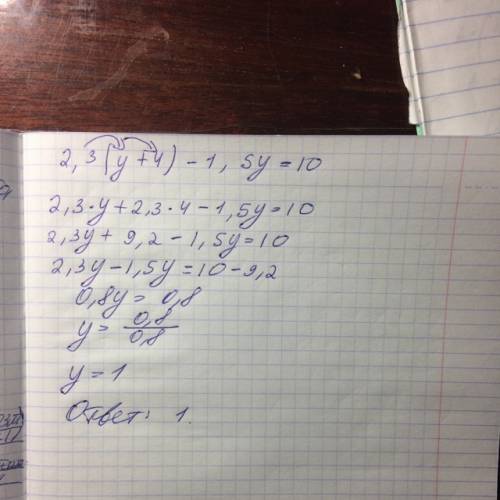 2,3(y+4)-1,5y=10
2,3·y+2,3·4-1,5y=10
2,3y+9,2-1,5y=10
2,3y-1,5y=10-9,2
0,8y=0,8
y=0,8/0,8
y=1
Ответ: 1.